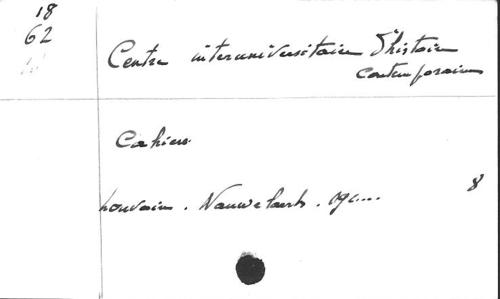 18
62
Centre interuniversitaire d'histoire
contemporaine
Cahiers
Louvain. Nauwelaerts.
8